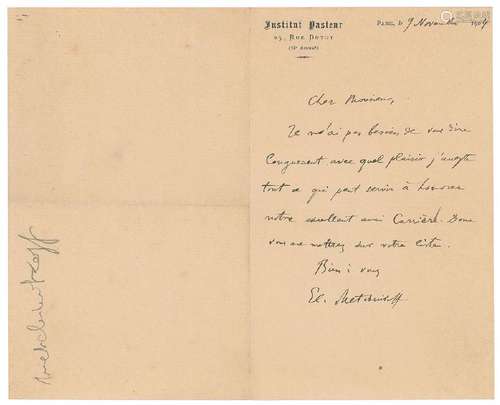 Institut Pasteur
25, Rue Dutot
(15e Arrondt)
Paris, le 9 Novembre 1904
Cher Monsieur,
Je n'ai pas besoin de vous dire
longuement avec quel plaisir j'accepte
tout ce qui peut servir à honorer
notre excellent ami Carrière. Donc
vous me mettrez sur votre liste.
Bien à vous
El. Metchnikoff